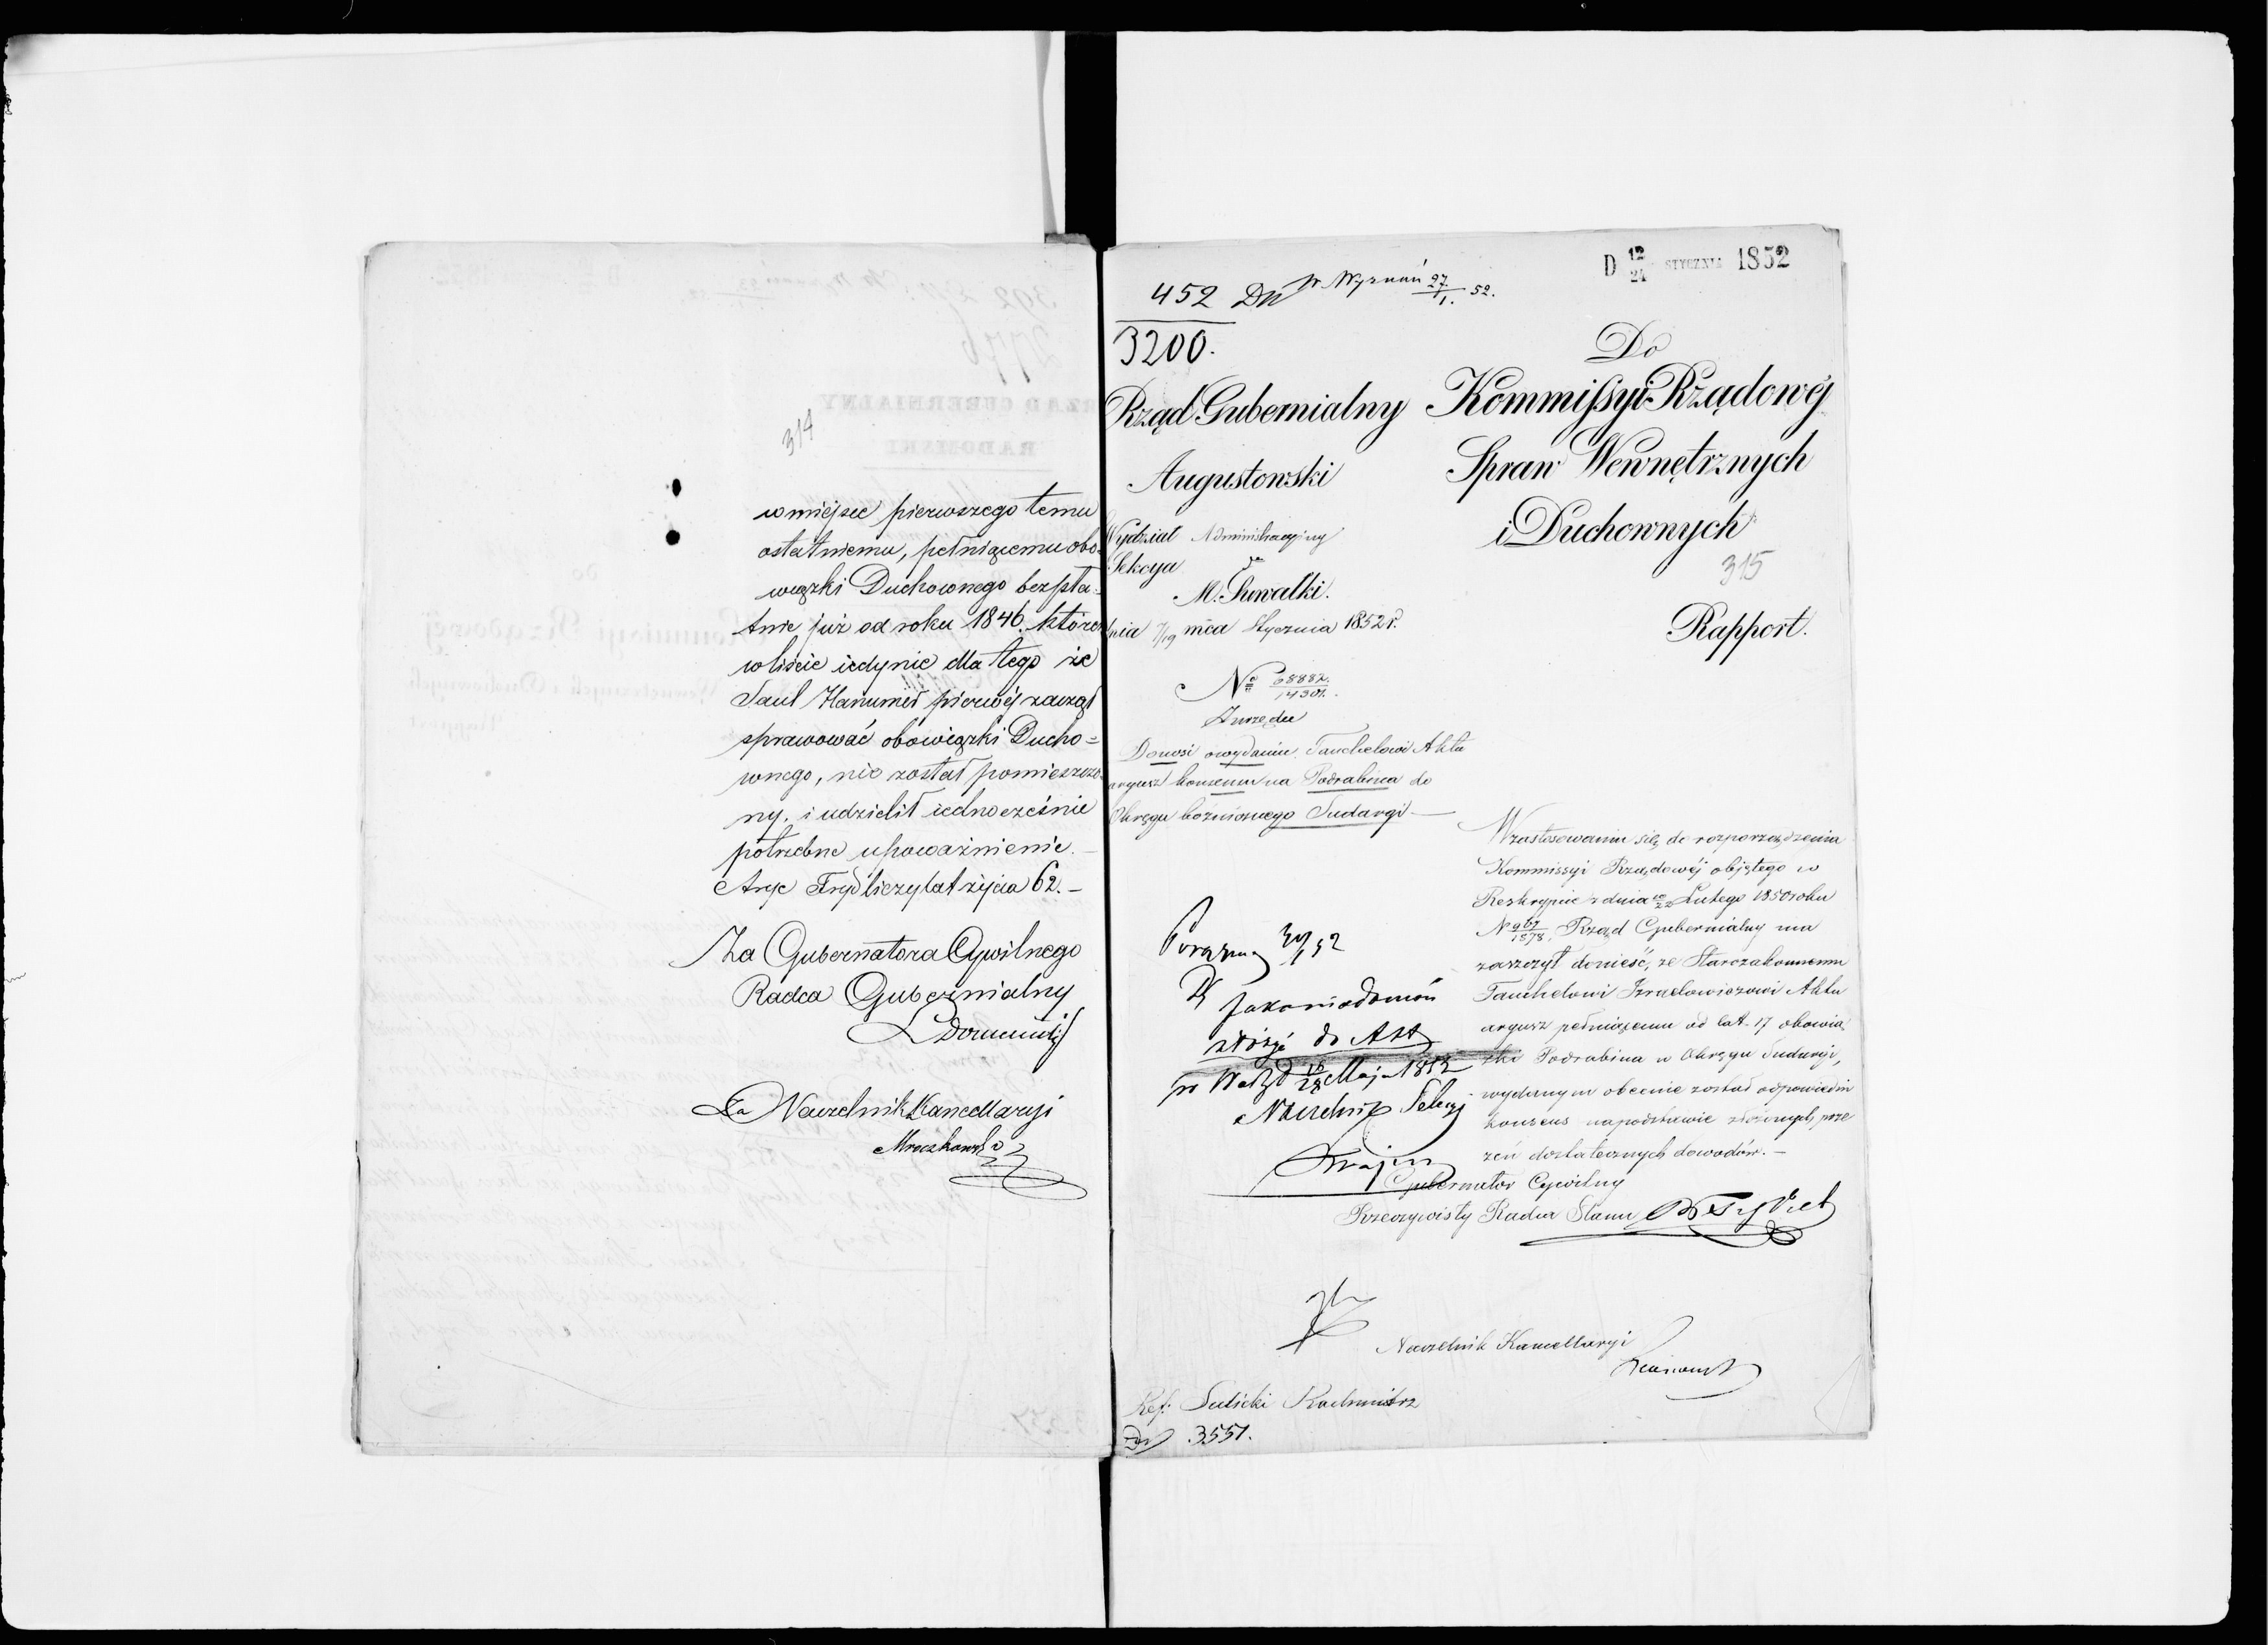 314
w miéjsce pierwszego temu
ostatniemu, pełniącemu obo-
wiązki Duchownego bezpła-
tnie już od roku 1846. które
w liście iedynie dla tego że
Saul Hanumer pierwéj zaczął
sprawować obowiązki Ducho=
wnego, nie został pomieszczo
ny. i udzielił iednocześnie
potrzebne upoważnienie. —
Aryc Fryd liczy lat życia 62. —
Za Gubernatora Cywilnego
Radca Gubernialny
Za Naczelnik Kancellaryi
Mroczkowski
D 12/24 STYCZNIA 1852
452 DW W. Wyznań 27/1. 52.
3200.
Rząd Gubernialny
Augustowski
Wydział Administracyjny
Sekcya
M. Suwałki.
dnia 7/19 mca Stycznia 1852 r.
No 68882/14301.
Z urzędu
Donosi o wydaniu Tanchelowi Akta
argusz konsensu na Podrabina do
Okręgu bóżniczego Sudargi —
Do
Kommissyi Rządowéj
Spraw Wewnętrznych
i Duchownych
315
Rapport.
W zastosowaniu się do rozporządzenia
Kommissyi Rządowéj objętego w
Reskrypcie z dnia 10/22 Lutego 1850 roku
Rząd Gubernialny ma
zaszczyt donieść, że Starozakonnemu
Tanchelowi Izraelowiczowi Akta
argusz pełniącemu od lat 17 obowią
zki Podrabina w Okręgu Sudargi,
wydanym obecnie został odpowiedni
konsens na podstawie złożonych prze
zeń dostatecznych dowodów. —
Gubernator Cywilny
Rzeczywisty Radca Stanu
Jako wiadomość
złożyć do Akt
Maja 1852
Naczelnik Sekcyi
Naczelnik Kancellaryi
Ref: Sulicki Rachmistrz
3551.